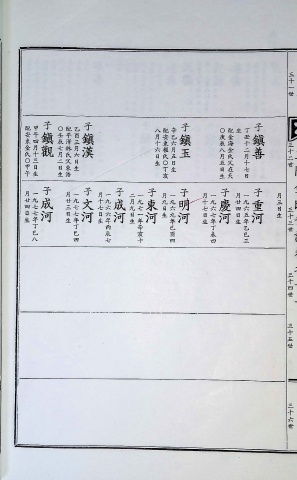 三十一世
三十二世
三十三世
三十四世
三十五世
三十六世
子鎮善
丁丑十二月十七日
生
配金海金氏父在天
〇庚辰八月五日生
子鎮玉
辛巳六月五日生
配安東權氏〇丁亥
八月十六日生
子鎮漢
乙酉三月六日生
配平澤林氏父東洛
〇壬辰七月二日生
子鎮觀
甲午四月十三日生
配安東金氏〇甲午
月三日生
子重河
一九六五年乙巳三
月廿四日生
子慶河
一九六七年丁未四
月十七日生
子明河
一九六九年己酉四
月九日生
子東河
一九七一年辛亥十
二月九日生
子成河
一九七六年丙辰七
月十七日生
子文河
一九七七年丁巳四
月廿三日生
子成河
一九七七年丁巳八
月廿四日生